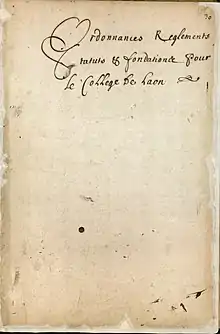 Ordonnances Reglements
Statuts & fondations Pour
Le College de Laon